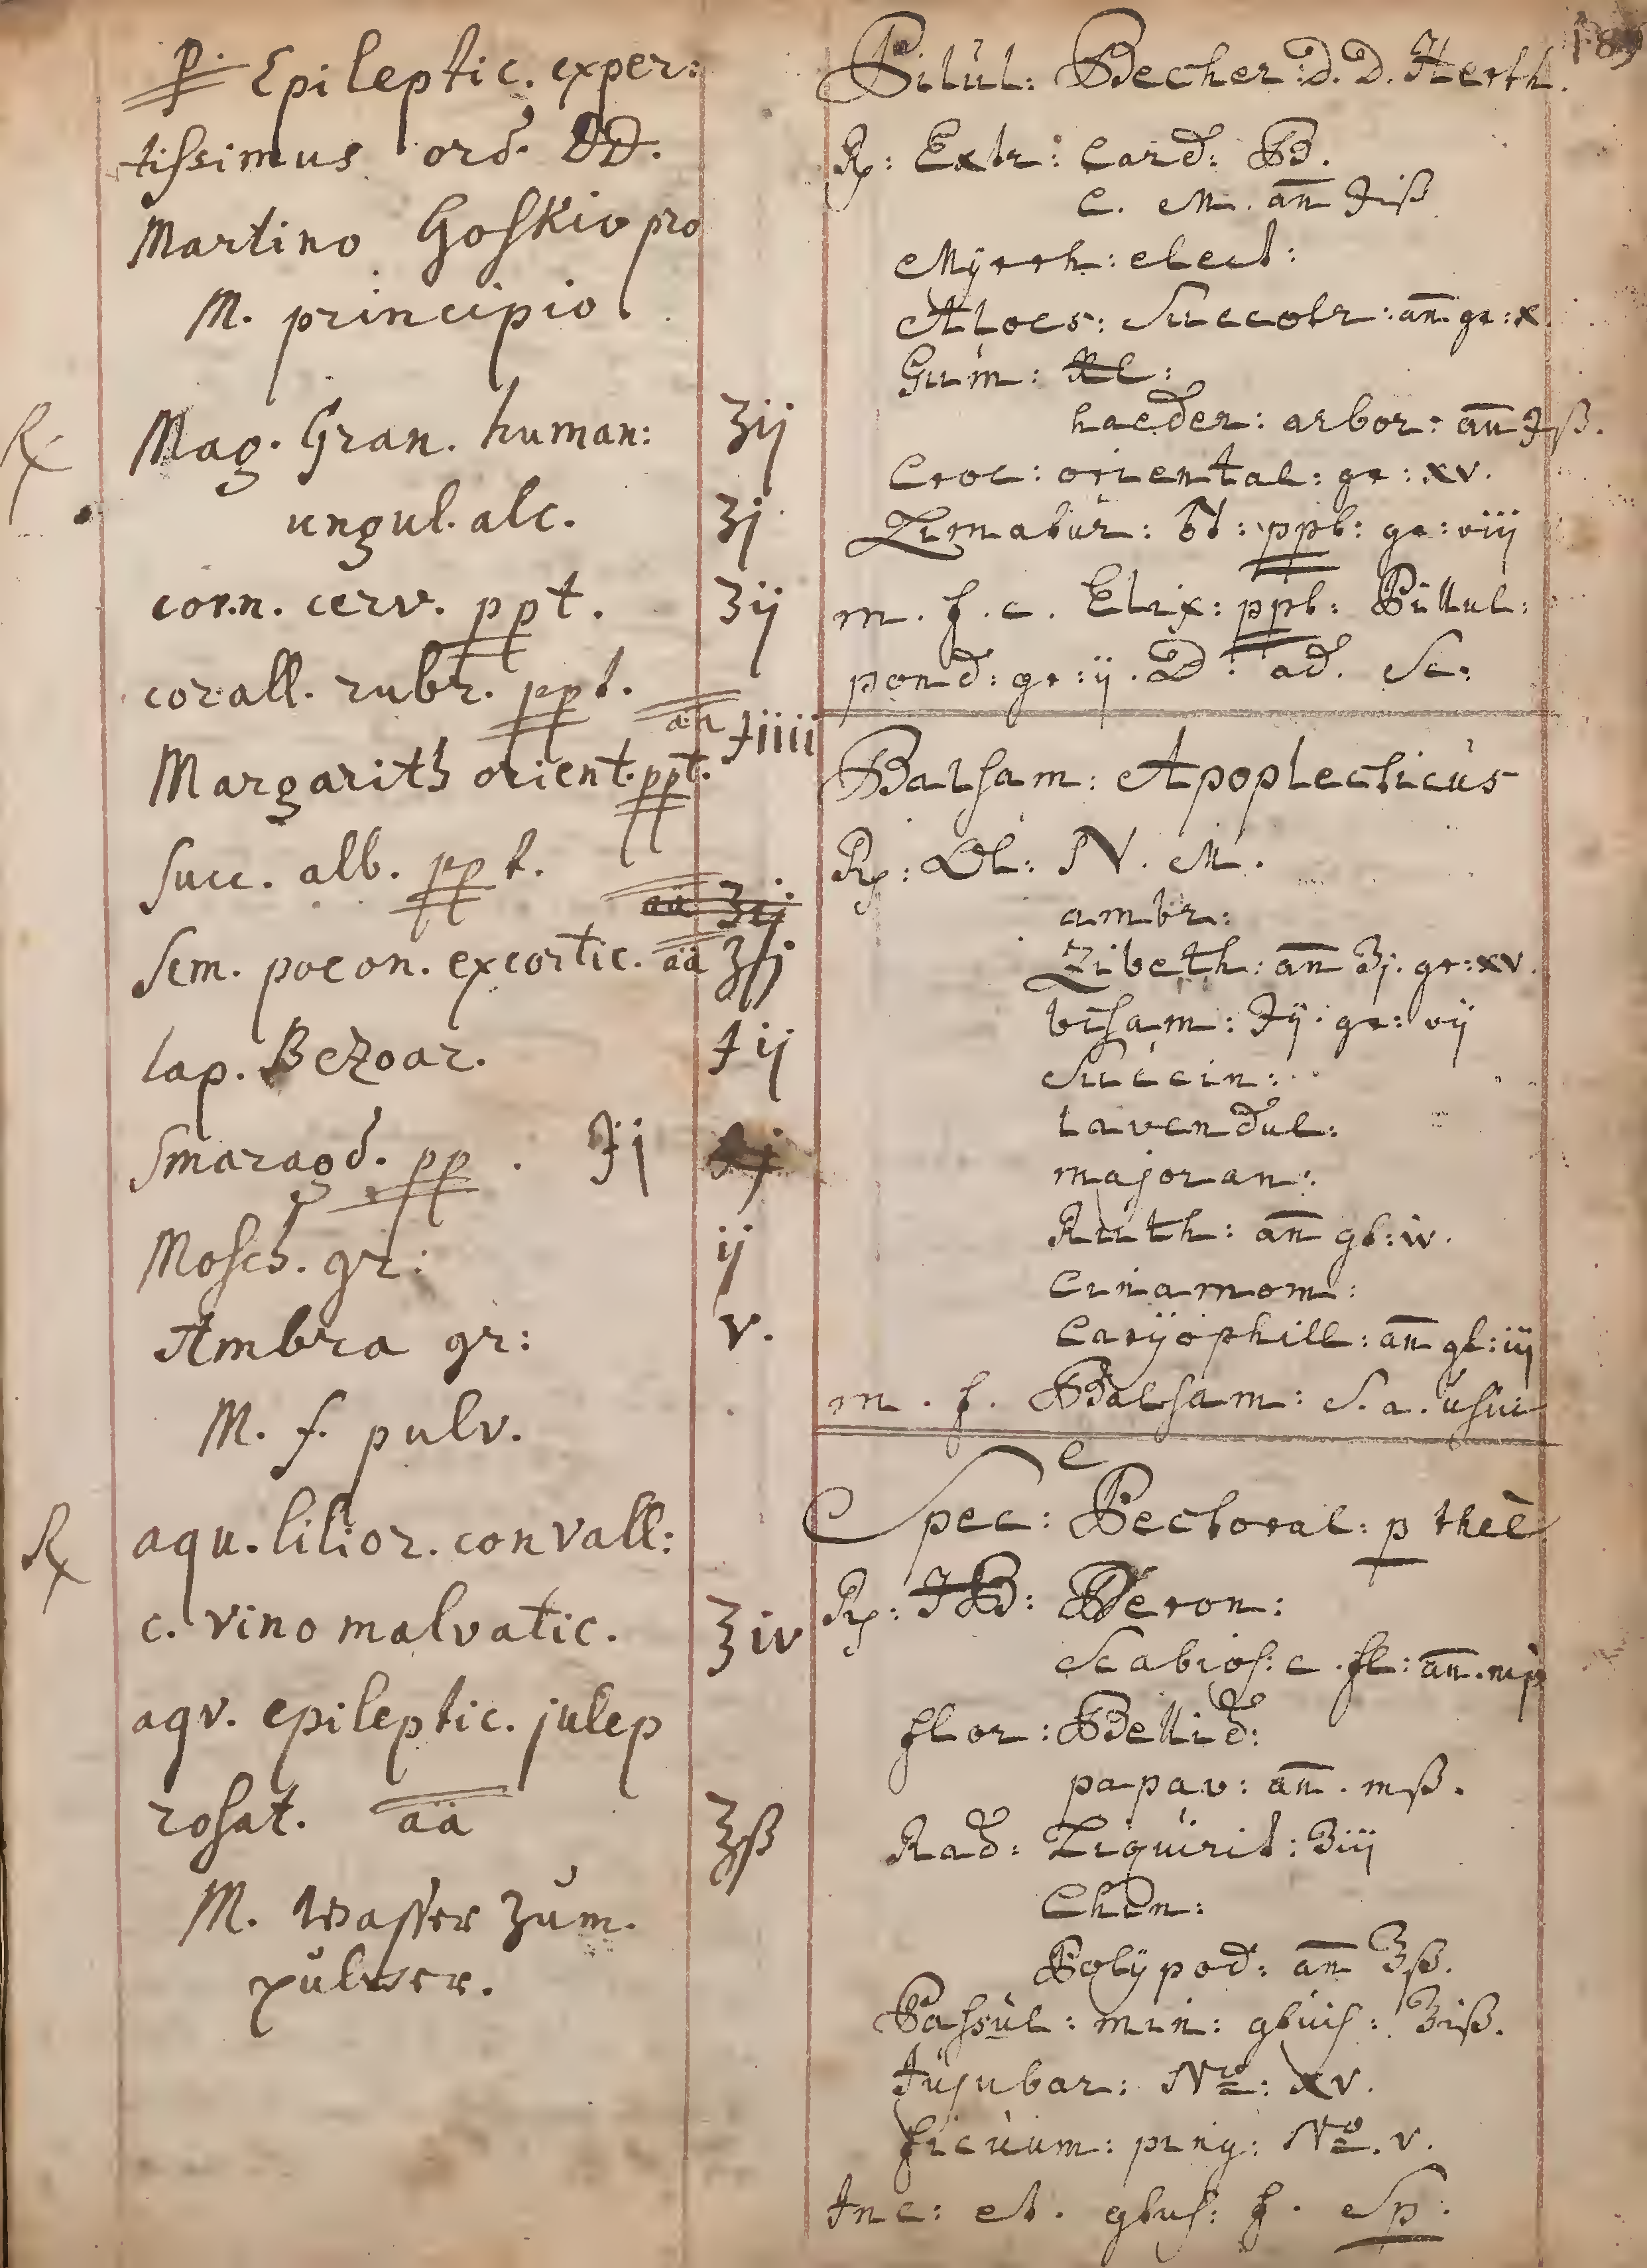 P. Epileptic. exper:
tissimus ord. DD.
Martino Goskio pro
M. principio
℞ Mag. Gran. human: ʒij
ungul. alc. ʒj
corn. cerv. ppt. ʒij
corall. rubr. ppt.
Margarith orient. ppt. an ℈iiii
Succ. alb. ppt.
Sem. poeon. excortic. aa
lap. Bezoar. ℈ij
Smaragd. pp. ℈j
Mosch. gr: ij
Ambra gr: v.
M. f. pulv.
℞ aqu. lilior. convall:
c. vino malvatic. ʒiv
aqv. epileptic. julep
rosat. aa ʒß
M. Wasser zum.
pulver.
189
Pilul: Becher: D. D. Herth.
℞: Extr: Card: B.
C. M. an ℈iß
Myrrh: elect:
Aloes: Succotr: an gr: x
Gum:
haeder: arbor: an ℈ß.
Croc: oriental: gr: xv.
Limatur: ppt: gr: viij
m. f. c. Elix: ppt: Pillul:
pond: gr: ij. D: ad. Sc:
Balsam: Apoplecticus
℞: Ol: N. M.
ambr:
Zibeth: an ʒj. gr: xv.
bisam: ℈ij. gr: vij
Succin:
Lavendul:
majoran:
Ruth: an gt: iv.
Cinamom:
Caryophill: an gt: iij
m. f. Balsam: S. a. usui
Spec: Pectoral: p thee
℞: Hb: Veron:
Scabios: c. fl: an. mp
flor: Bellid:
papav: an. mß.
Rad: Liquirit: ʒiij
Chin:
Polypod: an ʒß.
Passul: min: ʒiß.
Jujubar: Nro: xv.
ficuum: ping: No. v.
Inc: et. f. Sp.